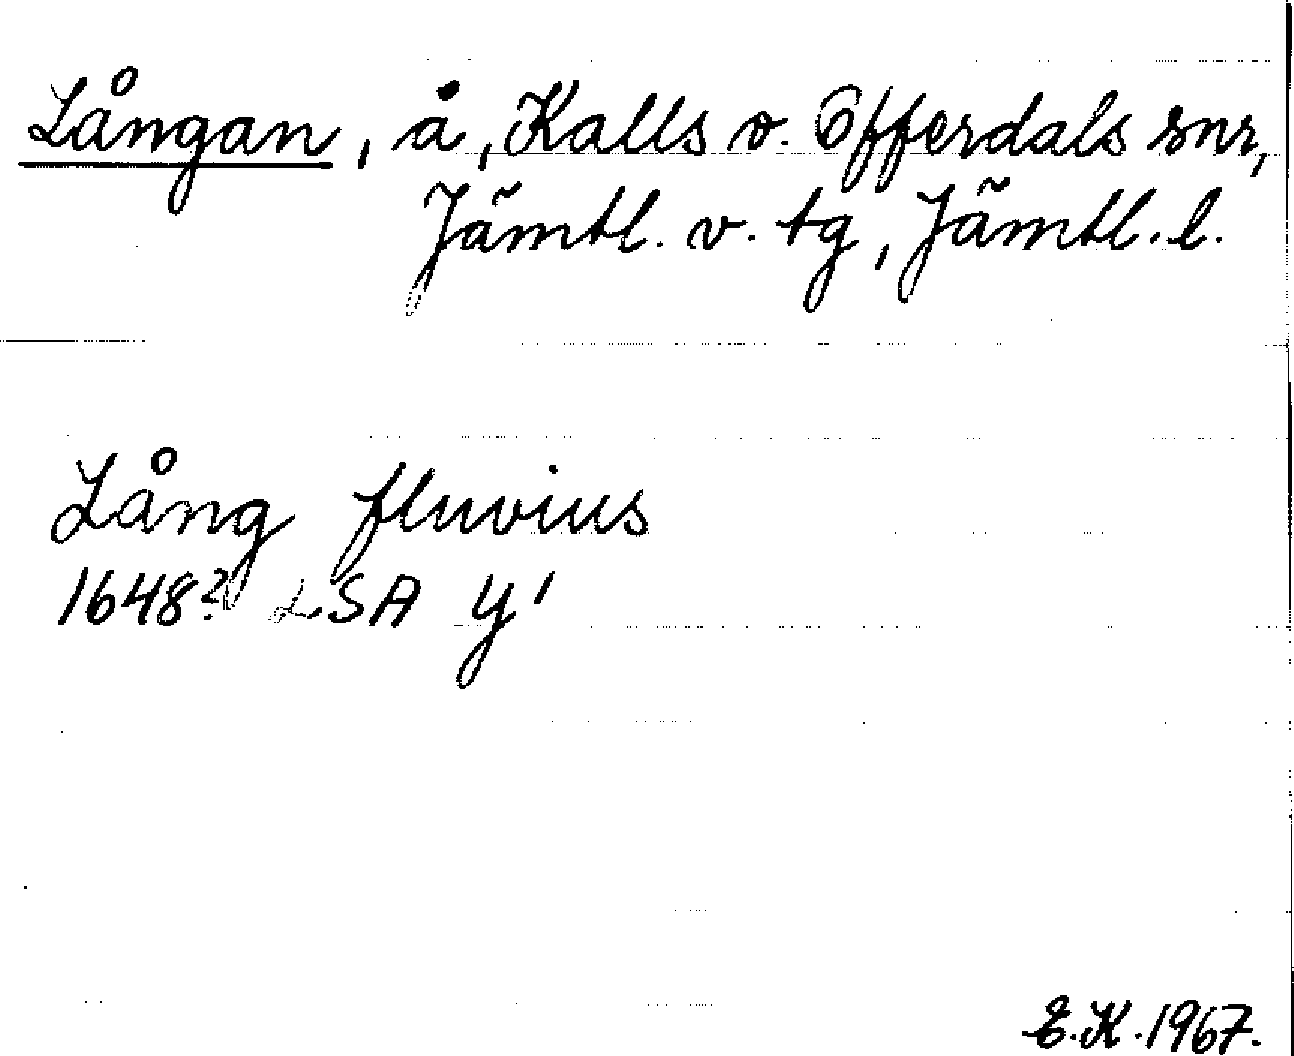 Långan, å, Kalls o. Offerdals snr,
Jämtl. v. tg, Jämtl. l.
Lång fluvius
1648? LSA Y 1
E.K. 1967.